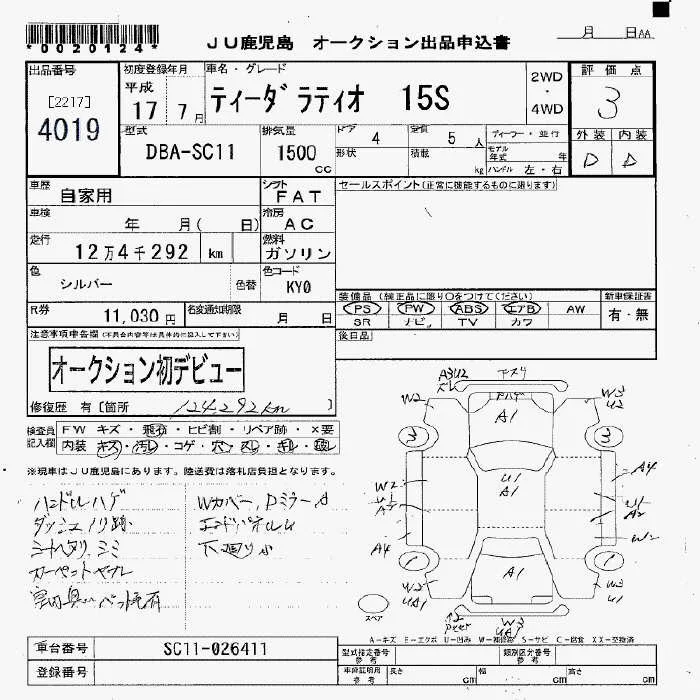 *0020124*
JU鹿児島 オークション出品申込書
月 日AA
出品番号
[2217]
4019
初度登録年月
平成
17 7月
車名・グレード
ティーダ ラティオ 15S
2WD
・
4WD
評価点
3
外装 内装
D D
型式
DBA-SC11
排気量
1500
cc
ドア
4
定員
5 人
ディーラー・並行
形状
積載
kg
モデル年式 年
ハンドル 左・右
車歴
自家用
シフト
FAT
車検
年 月( 日)
冷房
AC
走行
12万4千292 km
燃料
ガソリン
色
シルバー
色替
色コード
KY0
R券
11,030円
名変通知期限
月 日
セールスポイント(正常に機能するものに限ります)
装備品(純正品に限り○をつけてください)
PS PW ABS エアB AW
SR ナビ TV カワ
新車保証書
有・無
後日品
注意事項申告欄(不具合内容等は具体的に記入して下さい)
オークション初デビュー
修復歴 有[箇所 124,292km
検査員記入欄
FW キズ・飛石・ヒビ割・リペア跡・×要
内装 キズ・汚レ・コゲ・穴・スレ・キレ・破レ
※現車はJU鹿児島にあります。陸送費は落札店負担となります。
ハンドルハゲ
ダッシュノリ跡
シートヘタリ、シミ
カーペットヤブレ
Wカバー、DミラーA
エンドパネルU
下廻りサ
A3 U2
W2
A1
W3
U2
3
3
W2
U1
A1
U1
A1
A4
U1
A2
W2
A4
1
1
A1
W2
UA1
W3
U2
W3
UA1
スペア
A-キズ E-エクボ U-凹み W-補修跡 S-サビ C-腐食 XX-交換済
車台番号
SC11-026411
登録番号
型式指定番号
参考
類別区分番号
参考
車庫証明用
参考
長さ cm
幅 cm
高さ cm